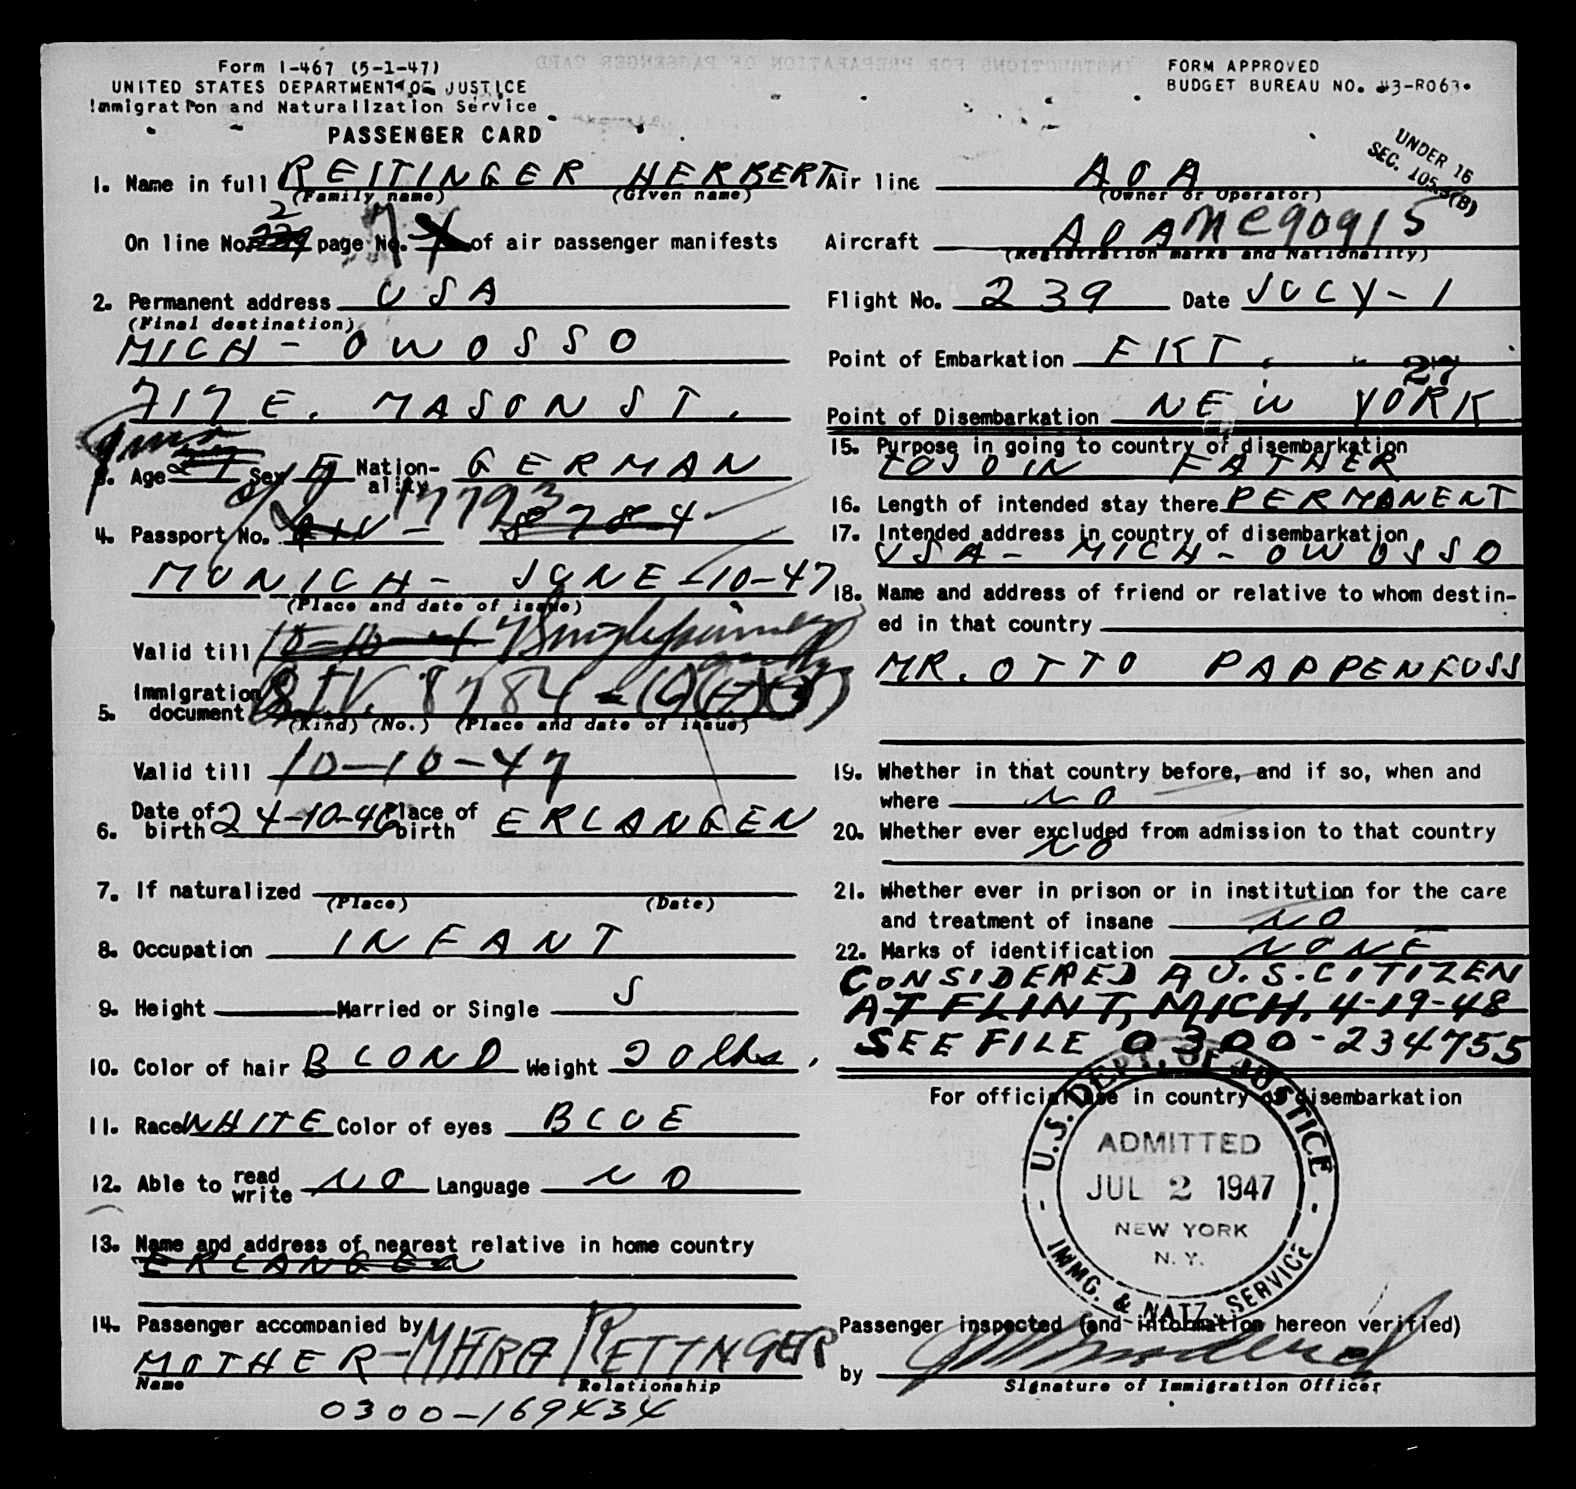 Form I-467 (5-1-47)
UNITED STATES DEPARTMENT OF JUSTICE
Immigration and Naturalization Service
PASSENGER CARD
FORM APPROVED
BUDGET BUREAU NO. 43-R063.
UNDER 16
SEC. 105.3(B)
1. Name in full REITINGER HERBERT
(Family name) (Given name)
2
On line No. page No. 7 of air passenger manifests
2. Permanent address USA
(Final destination)
MICH - OWOSSO
717 E. MASON ST.
3. Age Sex Nation-ality GERMAN
17793
4. Passport No. 8784
MUNICH - JUNE - 10-47
(Place and date of issue)
Valid till 10-10-47 Single journey only
5. Immigration document 8784
(Kind) (No.) (Place and date of issue)
Valid till 10-10-47
6. Date of birth 24-10-46 Place of birth ERLANGEN
7. If naturalized
(Place) (Date)
8. Occupation INFANT
9. Height Married or Single S
10. Color of hair BLOND Weight 20 lbs.
11. Race WHITE Color of eyes BLUE
12. Able to read write NO Language NO
13. Name and address of nearest relative in home country
ERLANGEN
14. Passenger accompanied by
MOTHER - REITINGER
Name Relationship
0300-169434
Air line AOA
(Owner or Operator)
Aircraft AOA NC90915
(Registration marks and Nationality)
Flight No. 239 Date JULY - 1
Point of Embarkation FKT.
27
Point of Disembarkation NEW YORK
15. Purpose in going to country of disembarkation
TO JOIN FATHER
16. Length of intended stay there PERMANENT
17. Intended address in country of disembarkation
USA - MICH - OWOSSO
18. Name and address of friend or relative to whom destin-
ed in that country
MR. OTTO PAPPENFUSS
19. Whether in that country before, and if so, when and
where NO
20. Whether ever excluded from admission to that country
NO
21. Whether ever in prison or in institution for the care
and treatment of insane NO
22. Marks of identification NONE
CONSIDERED A U.S. CITIZEN
AT FLINT, MICH. 4-19-48
SEE FILE 0300-234755
For official use in country of disembarkation
U.S. DEPT. OF JUSTICE
ADMITTED
JUL 2 1947
NEW YORK
N.Y.
IMMG. & NATZ. SERVICE
Passenger inspected (and information hereon verified)
by
Signature of Immigration Officer